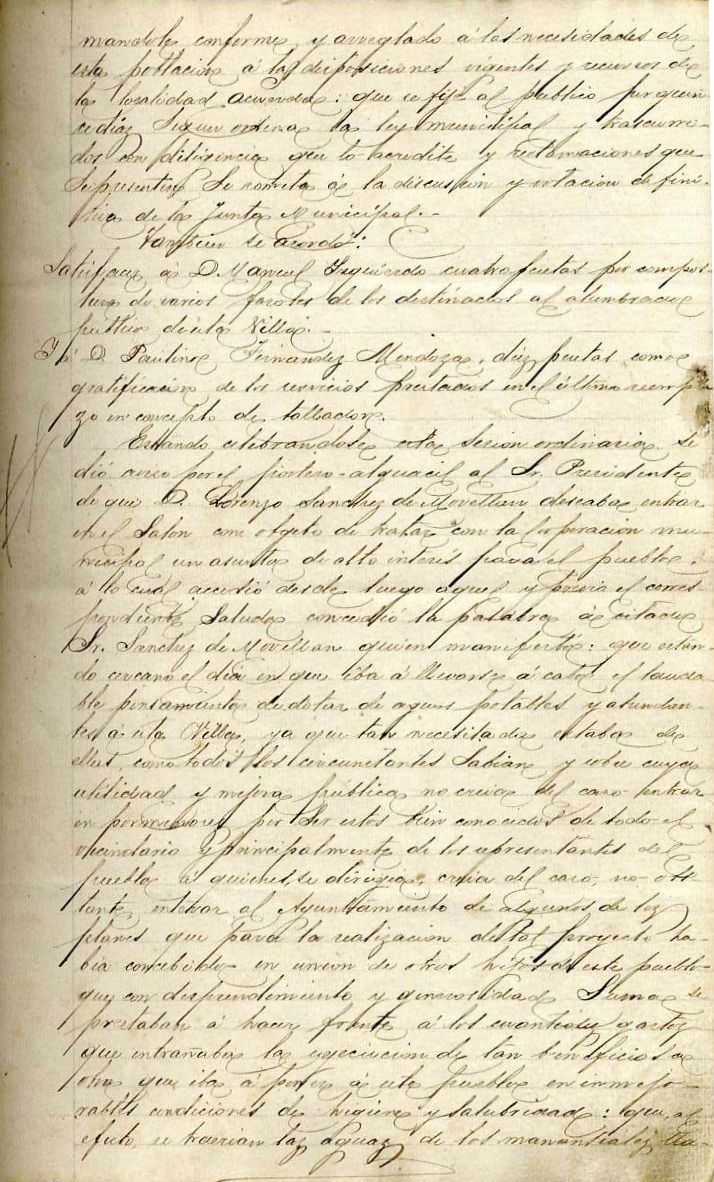 mandole conforme y arreglado á las necesidades de
esta poblacion á las disposiciones vigentes y recursos de
la localidad acuerda: que se fije al publico por quin
ce diaz segun ordena la ley municipal y trascurri-
dos con diligencia que lo acredite y reclamaciones que
se presenten se someta á la discusion y votacion defini-
tiva de la Junta Municipal.-
Tambien se acordó:
Satisfacer á D. Manuel Izquierdo cuatro pesetas por compos-
tura de varios faroles de los destinados al alumbrado
público de esta Villa.-
Y á D. Paulino Fernandez Mendoza, diez pesetas como
gratificacion de los servicios prestados en el último reempla
zo en concepto de tallador.
Estando celebrandose esta sesion ordinaria se
dió aviso por el portero-alguacil al Sr. Presidente
de que D. Lorenzo Sanchez de Movellan deseaba entrar
en el Salon con objeto de tratar con la Corporacion mu-
nicipal un asunto de alto interés para el pueblo,
á lo cual accedió desde luego aquel y previo el corres
pondiente saludo concedió la palabra á citado
Sr. Sanchez de Movellan quien manifestó: que estan-
do cercano el dia en que iba á llevarse á cabo el lauda
ble pensamiento de dotar de aguas potables y abundan-
tes á esta Villa, ya que tan necesitada estaba de
ellas, como todos los circunstantes sabian y sobre cuya
utilidad y mejora pública no creia del caso entrar
en pormenores por ser estos bien conocidos de todo el
vecindario y principalmente de los representantes del
pueblo á quienes se dirigia, creia del caso, no obs
tante, enterar al Ayuntamiento de algunos de los
planes que para la realizacion de tal proyecto ha-
bia concebido en union de otros hijos de este pueblo
que con desprendimiento y generosidad suma se
prestaban á hacer frente á los cuantiosos gastos
que entrañaba la ejecucion de tan beneficiosa
obra que iba á poner á este pueblo en inmejo-
rables condiciones de higiene y salubridad: que, al
efecto, se traerian las aguas de los manantiales lla-